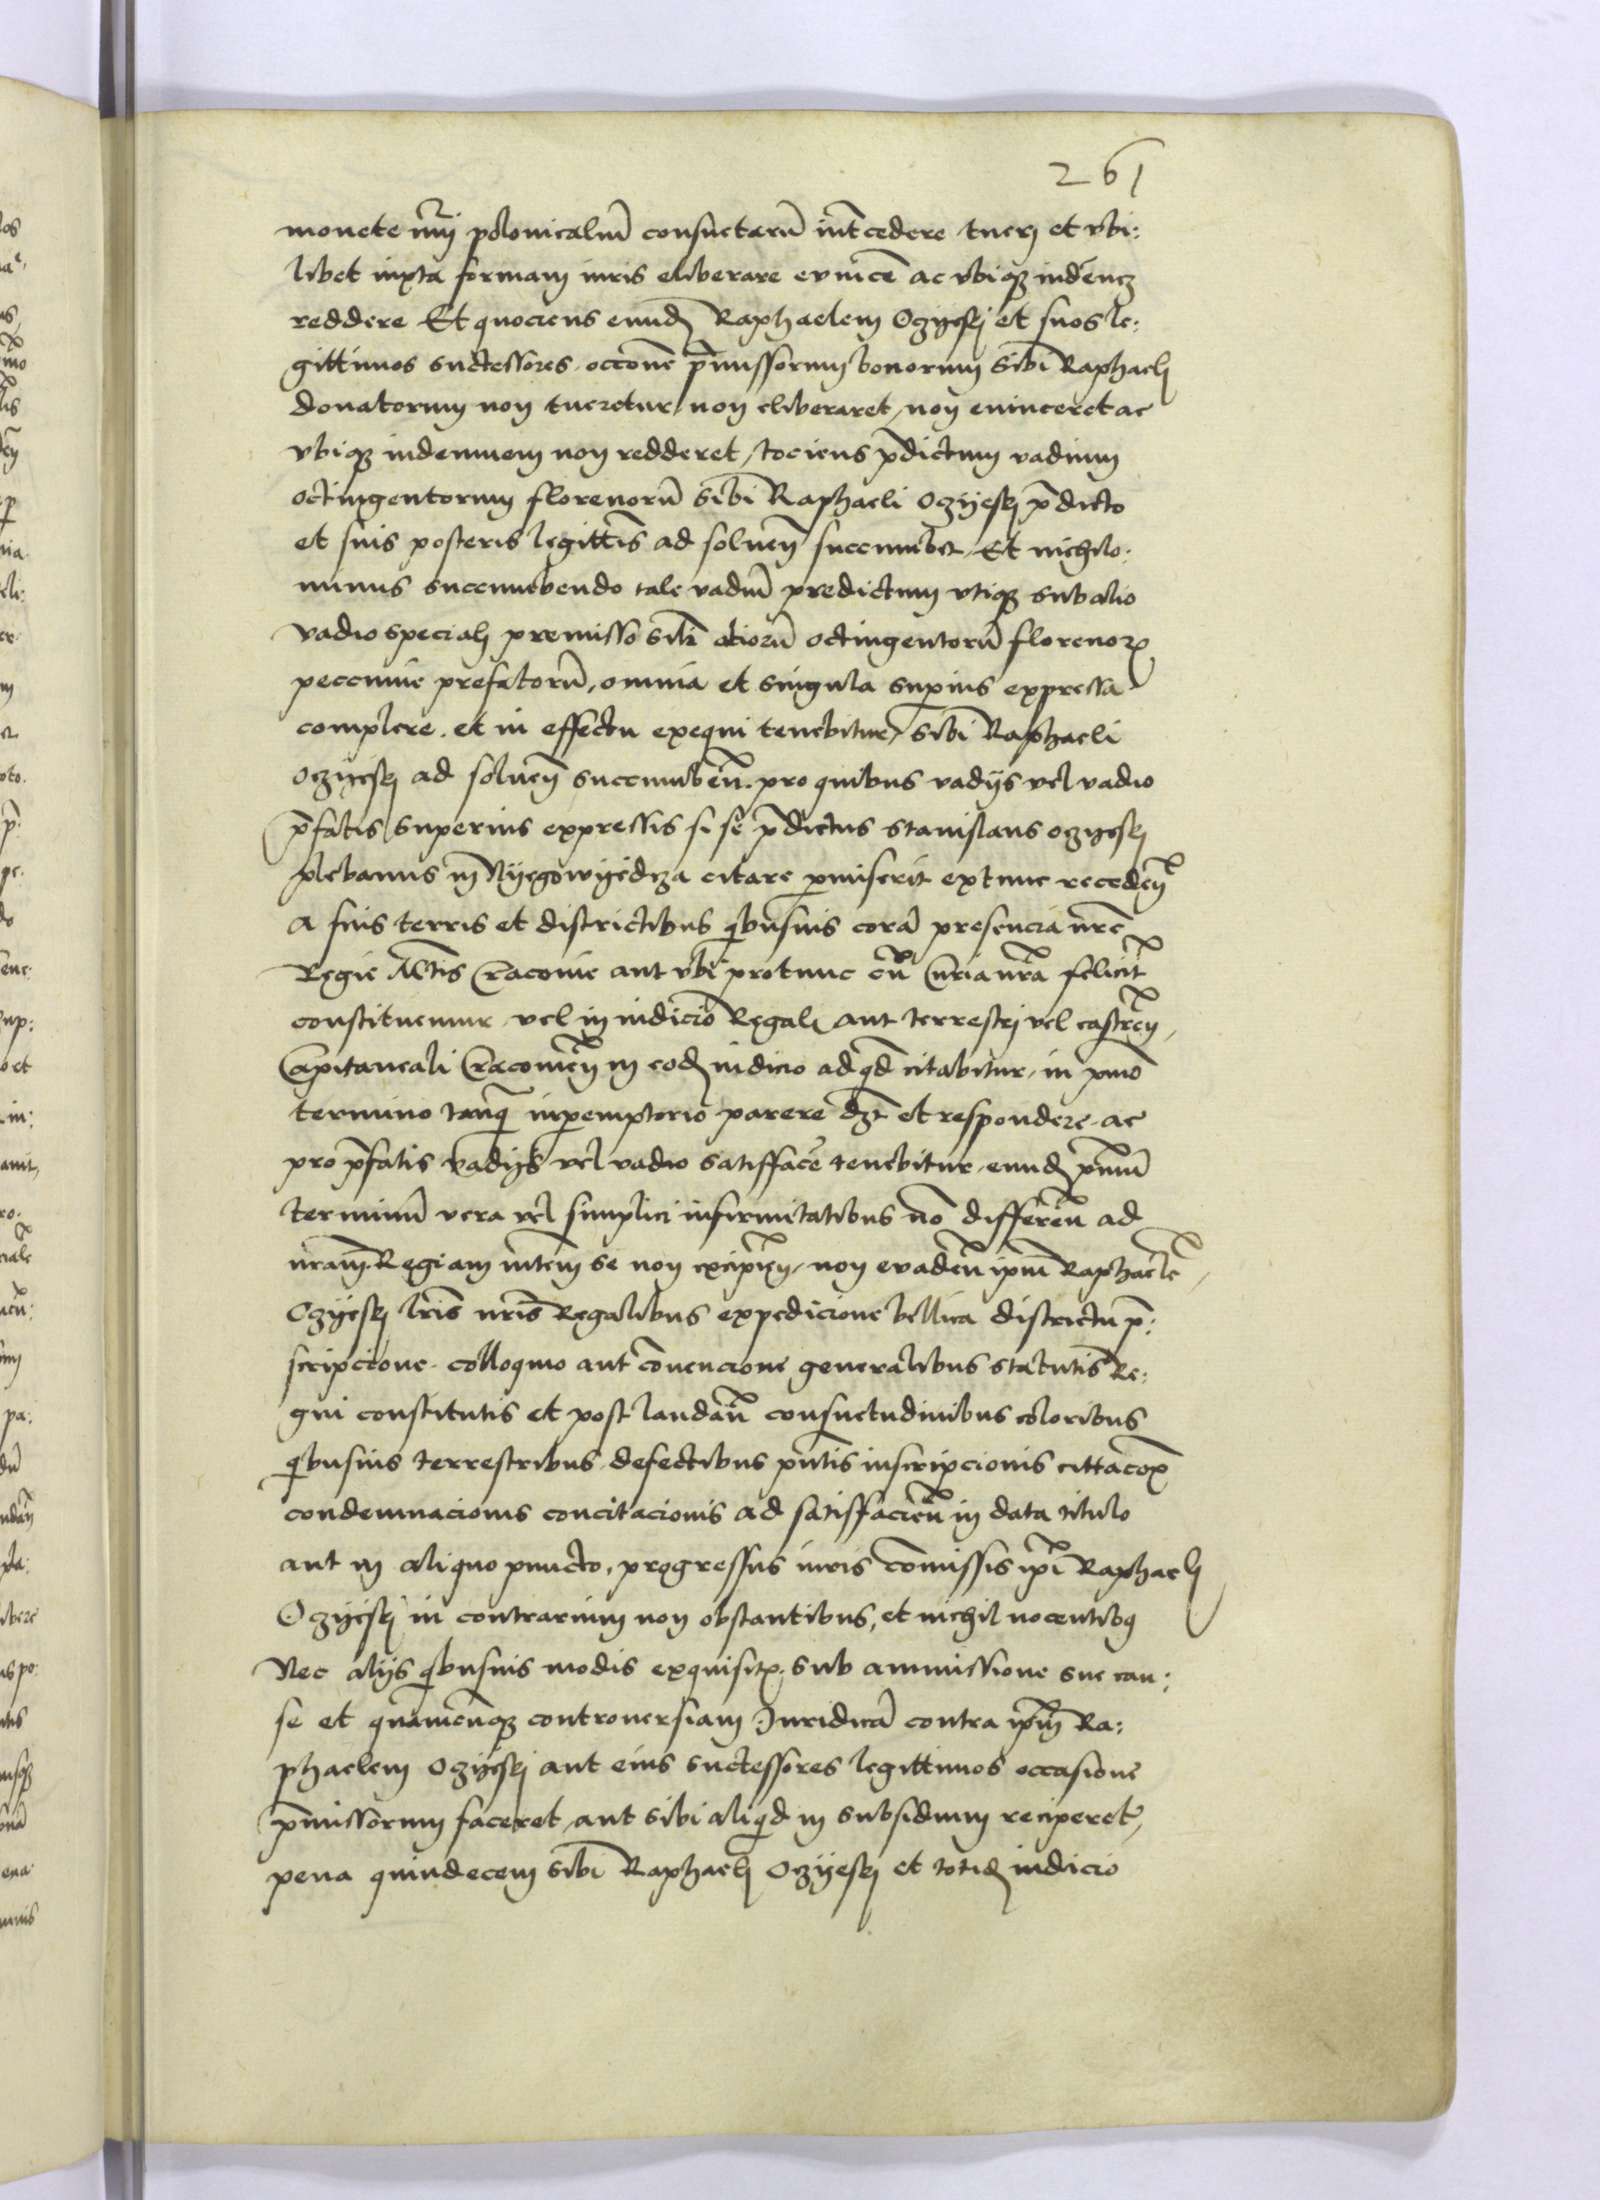 261
monete nrj polonicaliũ consuetarũ intcedere tuerj et vbi:
libet iuxta formam iuris eliberare evincẽ ac vbiqȝ indẽnẽ
reddere Et quociens eundẽ Raphaelem Ozyesky et suos le:
gittimos suctessores occonẽ p̃missorum bonorum sibi Raphaelj
donatorum non tueretur, non eliberaret, non evinceret ac
vbiqȝ indemnem non redderet, tociens p̃dictum vadium
octingentorum florenorũ sibi Raphaeli Ozyesky p̃dicto
et suis posteris legittĩs ad soluen̄ succumbet. Et nichilo:
minus succumbendo tale vadiũ predictum vtiqȝ sub alio
vadio specialj premisso sibi aliorũ octingentorũ florenoꝝ
peccunie prefatorũ, omnia et singula superius expressa
complere. et in effectu exequi tenebitur, sibi Raphaeli
Ozyesky ad soluen̄ succumben̄. pro quibus vadijs vel vadio
p̃fatis superius expressis si se p̃dictus Stanislaus Ozyesky
plebanus in Nyegowyedza citare p̱miserit extunc receden̄
A suis terris et districtibus qͥbusuis corã presencia nr̃e
Regie Mt̃is Cracouie aut vbi protunc cũ Curia nr̃a felicit̃
constituemur vel in iudicio Regalj aut terrestrj vel castren̄
Capitaneali Cracouien̄ in eodẽ iudicio ad qd̃ citabitur, in p̱mo
termino tanq̃ in p̱emptorio parere dȝ et respondere. ac
pro p̃fatis vadijs vel vadio satisfacẽ tenebitur, eundẽ p̱mũ
terminũ vera vel simplici infirmitatibus nõ differen̄ ad
nr̃am Regiam mtem se non excipien̄, non evaden̄ ipm̃ Raphaelẽ
Ozyesky lr̃is nr̃is Regalibus expedicione bellica districtu p̃:
scripcione. colloquio aut cõuencione generalibus statutis Re:
gni constitutis et post laudan̄ consuetudinibus coloribus
qͥbusuis terrestribus defectibus pñtis inscripcionis cittacõꝫ
condemnacionis concitacionis ad satisfacien̄ in data titulo
aut in aliquo puncto, progressus iuris cõmissis ipĩ Raphaelj
Ozyesky in contrarium non obstantibus, et nichil nocentibꝯ
Nec alijs qͥbusuis modis exquisitꝭ. sub ammissione sue cau:
se et quamcũqȝ controuersiam Iuridicã contra ipm̃ Ra:
phaelem Ozyesky aut eius suctessores legittimos occasione
p̃missorum faceret, aut sibi aliqͥd in subsidium reciperet,
pena quindecem sibi Raphaelj Ozyesky et totidẽ iudicio